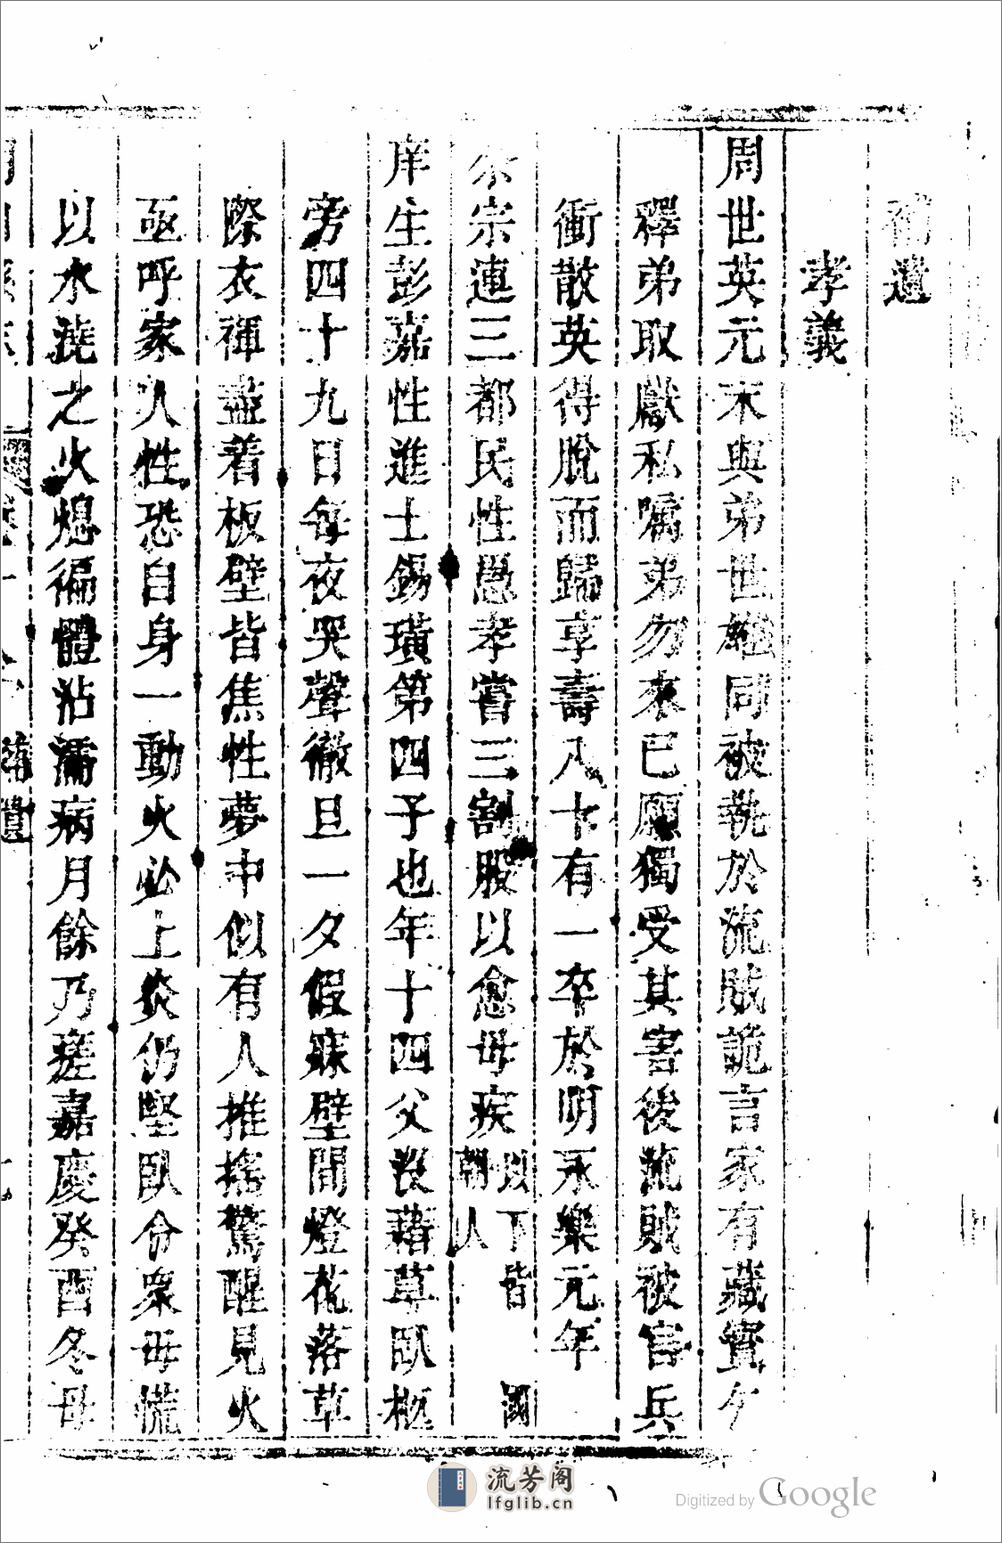 補遺
孝義
周世英元末與弟世雄同被執於流賊詭言家有藏寶乞
釋弟取獻私囑弟勿來已願獨受其害後流賊被官兵
衝散英得脫而歸享壽八十有一卒於明永樂元年
宗連三都民性愚孝嘗三割股以愈母疾以下皆國朝人
庠生彭嘉性進士錫璜第四子也年十四父沒藉草臥柩
旁四十九日每夜哭聲徹旦一夕假寐壁間燈花落草
際衣褌盡着板壁皆焦性夢中似有人推搖驚醒見火
亟呼家人性恐自身一動火必上炎仍堅臥令衆毋慌
以水澆之火熄徧體沾濡病月餘乃瘥嘉慶癸酉冬母
補遺
流芳阁
lfglib.cn
Digitized by Google